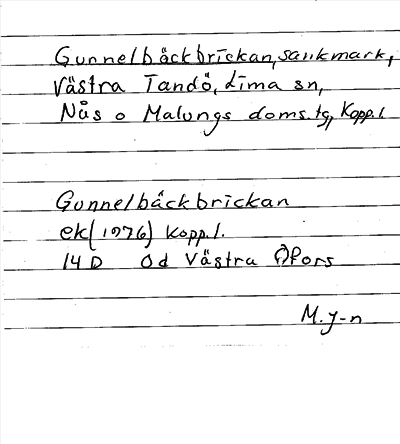 Gunnelbäckbrickan, sankmark,
Västra Tandö, Lima sn,
Nås o Malungs doms.tg, Kopp.l.
Gunnelbäckbrickan
ek (1976) Kopp.l.
14 D 0d Västra Ofors
M.J-n